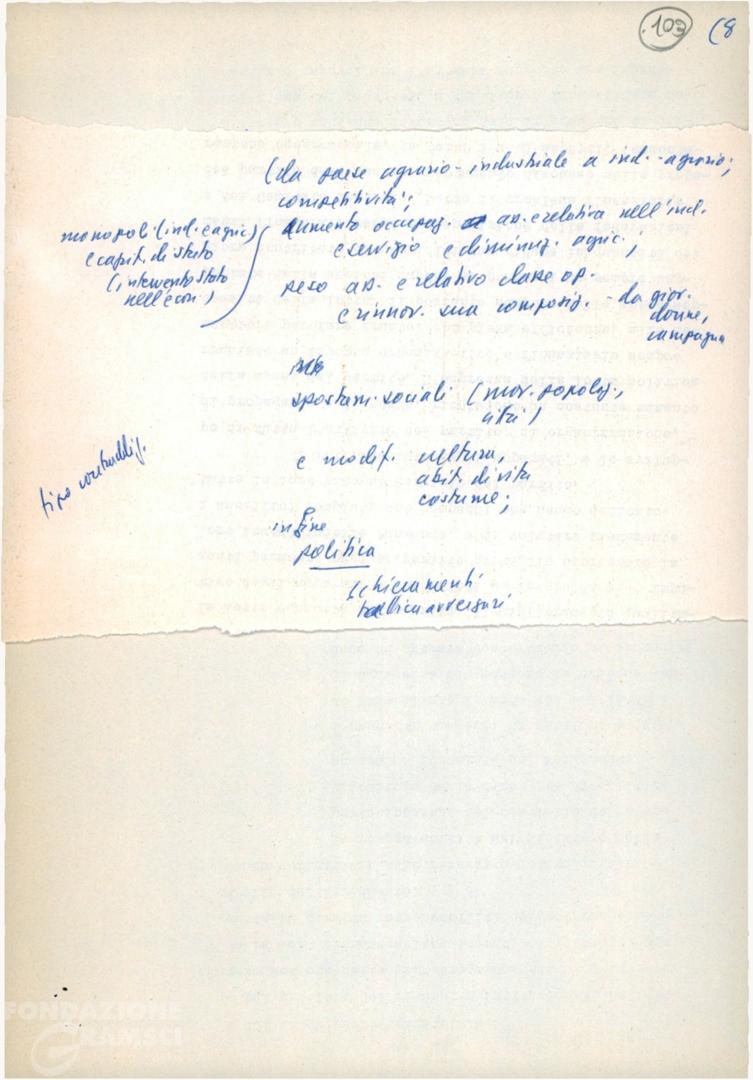 103 (8
(da paese agrario-industriale a ind.-agrario;
competitività;
monopoli (ind. e agric)
e capit. di stato
(intervento stato
nell'econ)
aumento occupaz. as. e relativa nell'ind.
e servizio e diminuz. agric.,
peso as. e relativo classe op.
e rinnov. sua composiz. - da giov.
donne,
campagna
spostam. sociali (mov. popolaz.,
città)
tipo contraddiz.
e modif. cultura,
abit. di vita
costume;
infine
politica
schieramenti
tattica avversari
FONDAZIONE
GRAMSCI